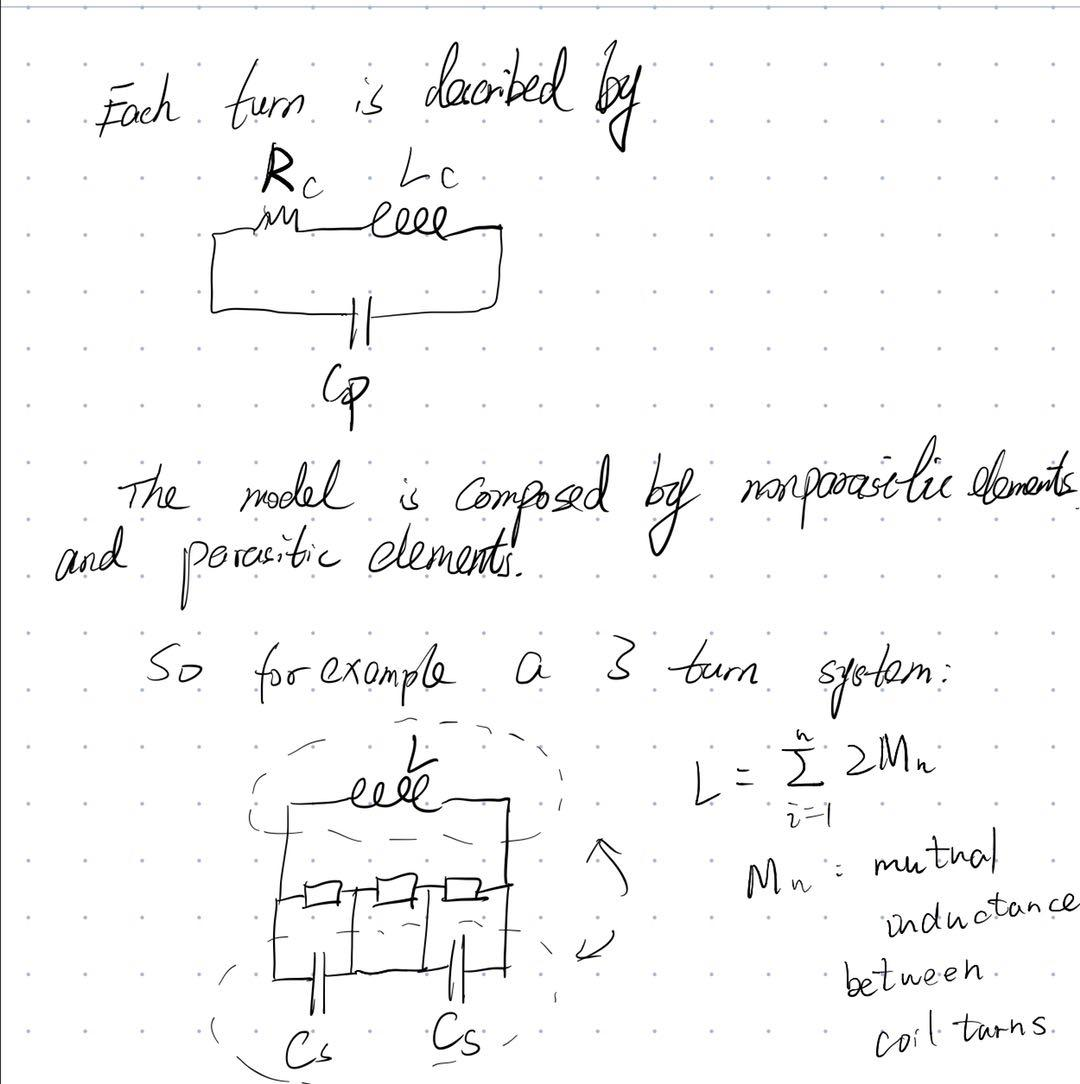 Each turn is decribed by
Rc Lc
Cp
The model is composed by nonparasitic elements
and parasitic elements.
So for example a 3 turn system:
L
L = n∑i=1 2Mn
Mn : mutual
inductance
between
coil turns
Cs Cs